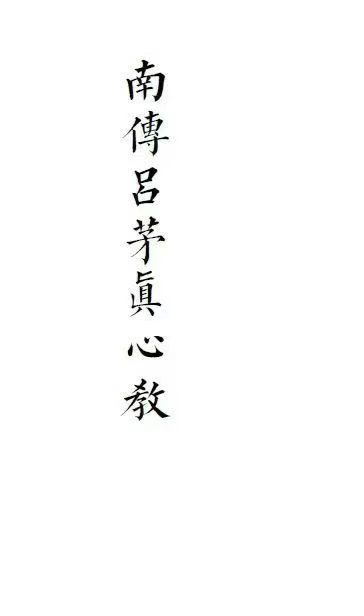 南傳呂茅眞心教